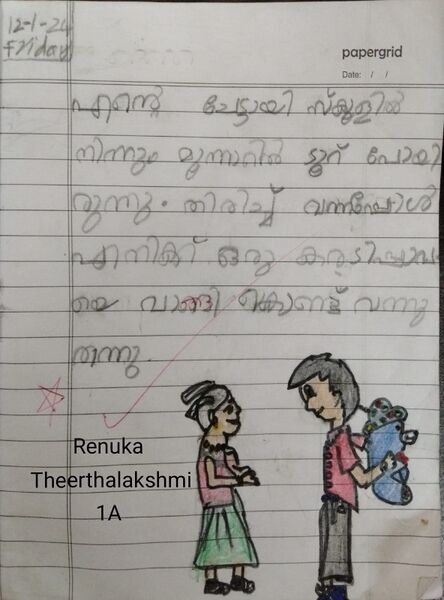 12-1-24
Friday
papergrid
Date: / /
എന്റെ ചേട്ടായി സ്കൂളിൽ
നിന്നും മൂന്നാറിൽ ടൂറ് പോയി
രുന്നു. തിരിച്ച് വന്നപ്പോൾ
എനിക്ക് ഒരു കരടിപ്പാവ
യെ വാങ്ങി കൊണ്ട് വന്നു
തന്നു.
Renuka
Theerthalakshmi
1A